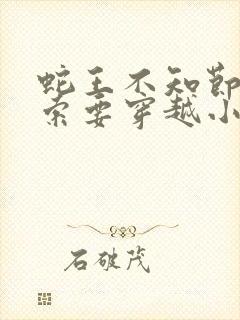 蛇王不知節
索要穿越小
石破茂